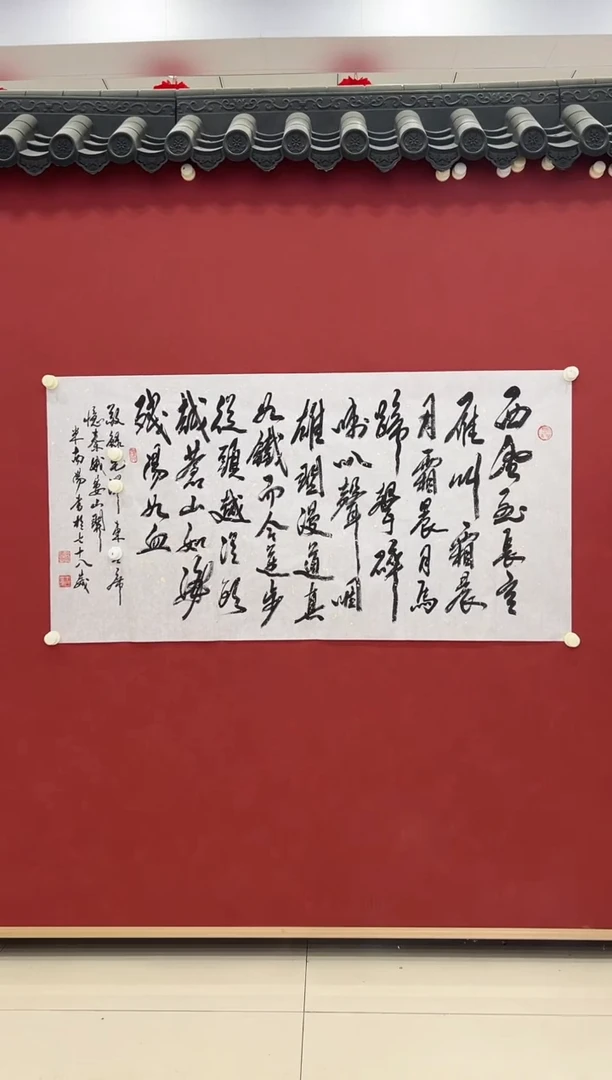 西風烈長空
雁叫霜晨
月霜晨月馬
蹄聲碎
喇叭聲咽
雄關漫道真
如鐵而今邁步
從頭越從頭
越蒼山如海
殘陽如血
敬錄毛澤東主席
憶秦娥婁山關
米南陽書於七十八歲